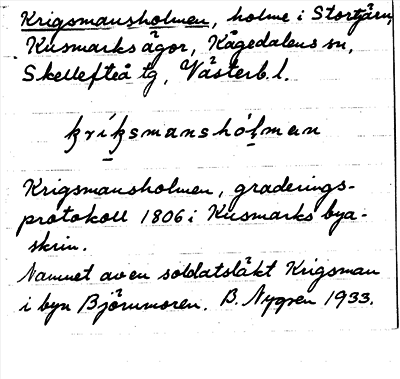 Krigsmansholmen, holme i Stortjärn,
Kusmarks ägor, Kågedalens sn,
Skellefteå tg, Västerb. l.
k̠rík̠smanshól̠man
Krigsmansholmen, graderings-
protokoll 1806 i Kusmarks bya-
skrin.
Namnet av en soldatsläkt Krigsman
i byn Björnmoren. B. Nygren 1933.